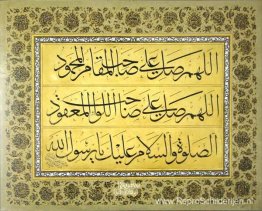 اللهم صل على صاحب المقام المحمود
اللهم صل على صاحب اللواء المعقود
الصلوة والسلام عليك يا رسول الله
www.ReproSchilderijen.nl